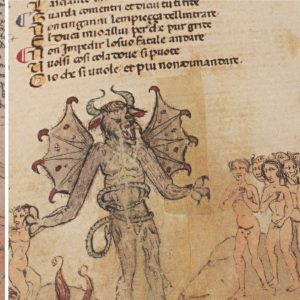 Guarda comentri et dicui tu ti fide
Non tinganni lempieçça dellintrare
El duca mio allui per che pur gride
Non impedir lo suo fatale andare
Vuolsi cosi cola dove si puote
Cio che si vuole et piu non domandare.